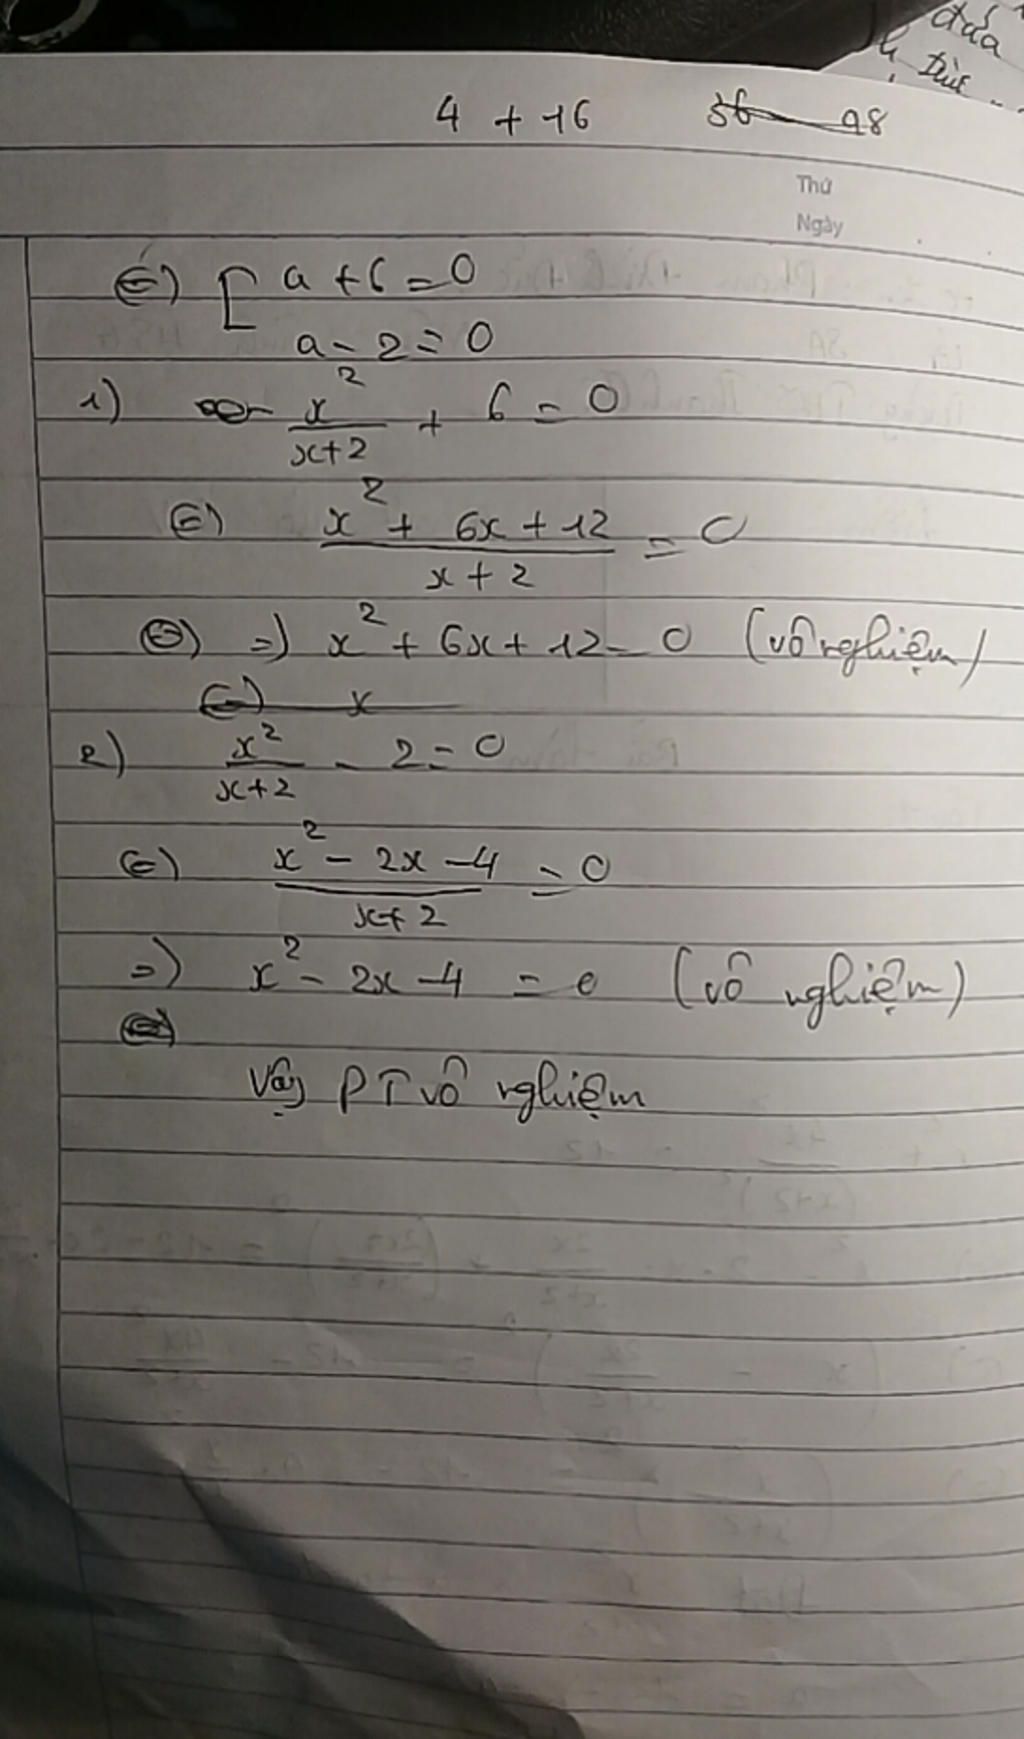 đứa
4 + 16 36 98
Thứ
Ngày
(=) [ a + 6 = 0
a - 2 = 0
1) x²/(x+2) + 6 = 0
(=) (x² + 6x + 12)/(x + 2) = 0
=) x² + 6x + 12 = 0 (vô nghiệm)
(=) x
2) x²/(x+2) - 2 = 0
(=) (x² - 2x - 4)/(x+2) = 0
=) x² - 2x - 4 = 0 (vô nghiệm)
Vậy PT vô nghiệm